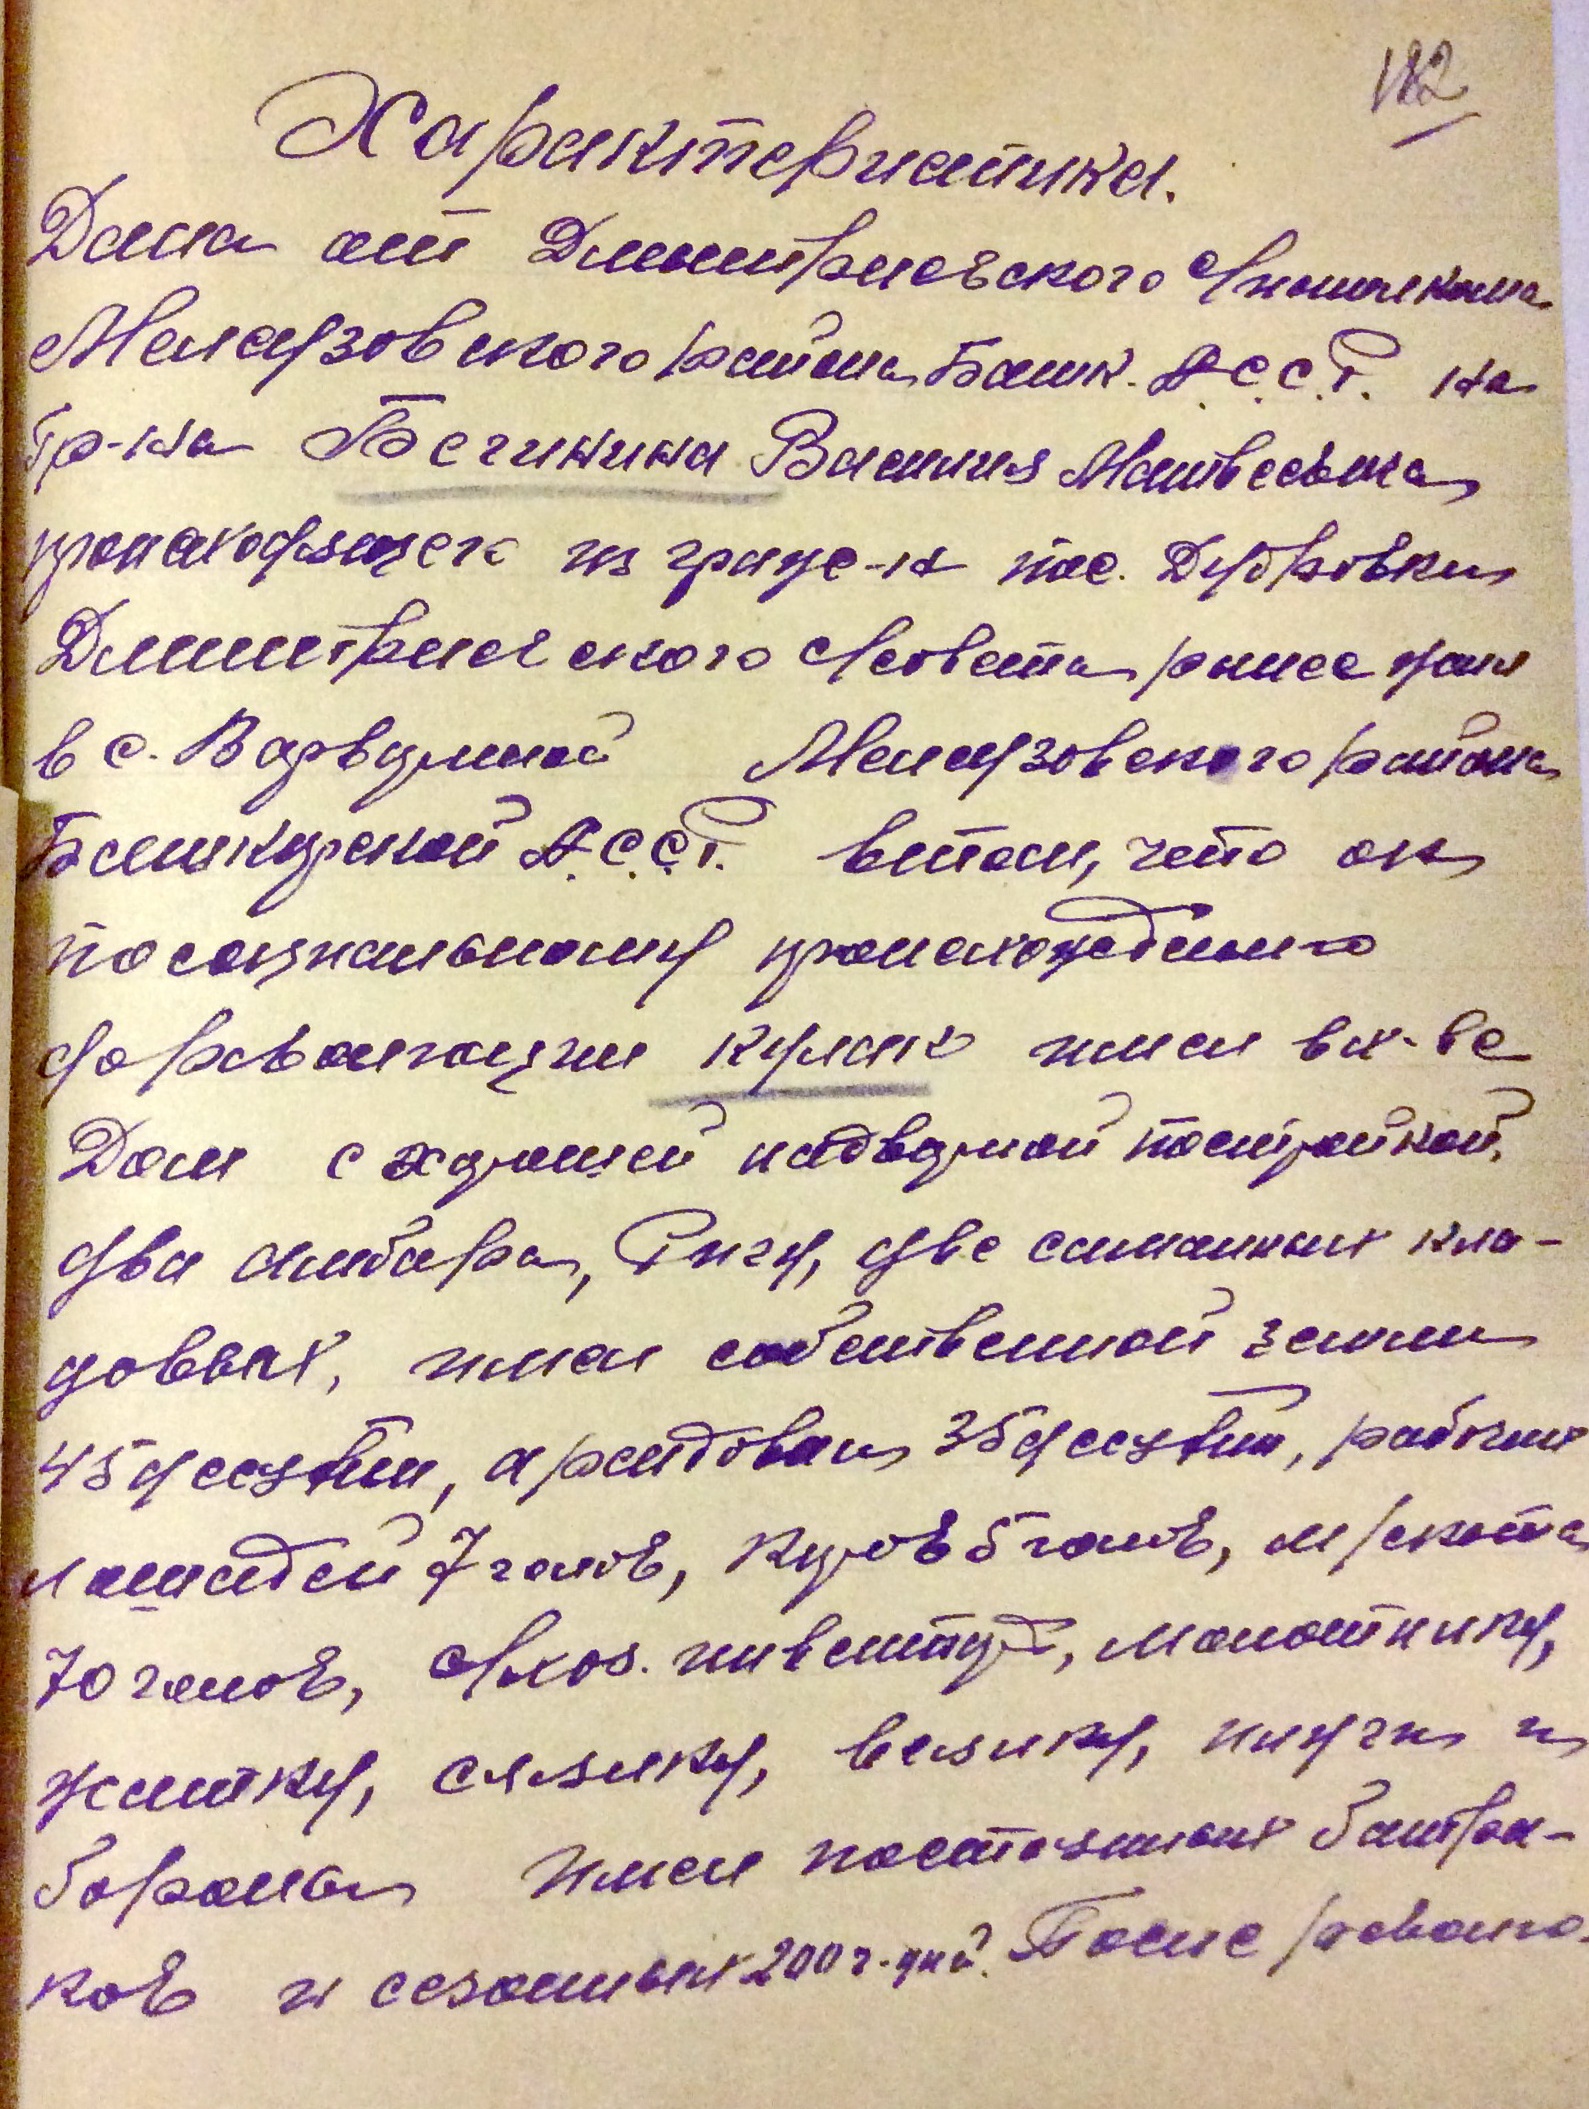 182
Характеристика.
Дана от Дмитриевского с/исполкома
Мелеузовского района Башк. А.С.С.Р. на
гр-на Бегинина Василия Матвеевича
происходящего из гражд-н пос. Дубровки
Дмитриевского с/совета, ранее жил
в с. Варварино Мелеузовского района
Башкирской А.С.С.Р. в том, что он
по социальному происхождению
до революции кулак имел в х-ве
Дом с хорошей надворной постройкой,
два амбара, Ригу, две саманных кла-
довых, имел собственной земли
45 десятин, арендовал 35 десятин, рабочих
лошадей 7 голов, коров 5 голов, м/скота
70 голов, с/хоз. инвентарь, молотилку,
жатку, сеялку, веялку, плуги и
бороны имел постоянных батра-
ков и сезонных 200 ч.-дней. После револю-